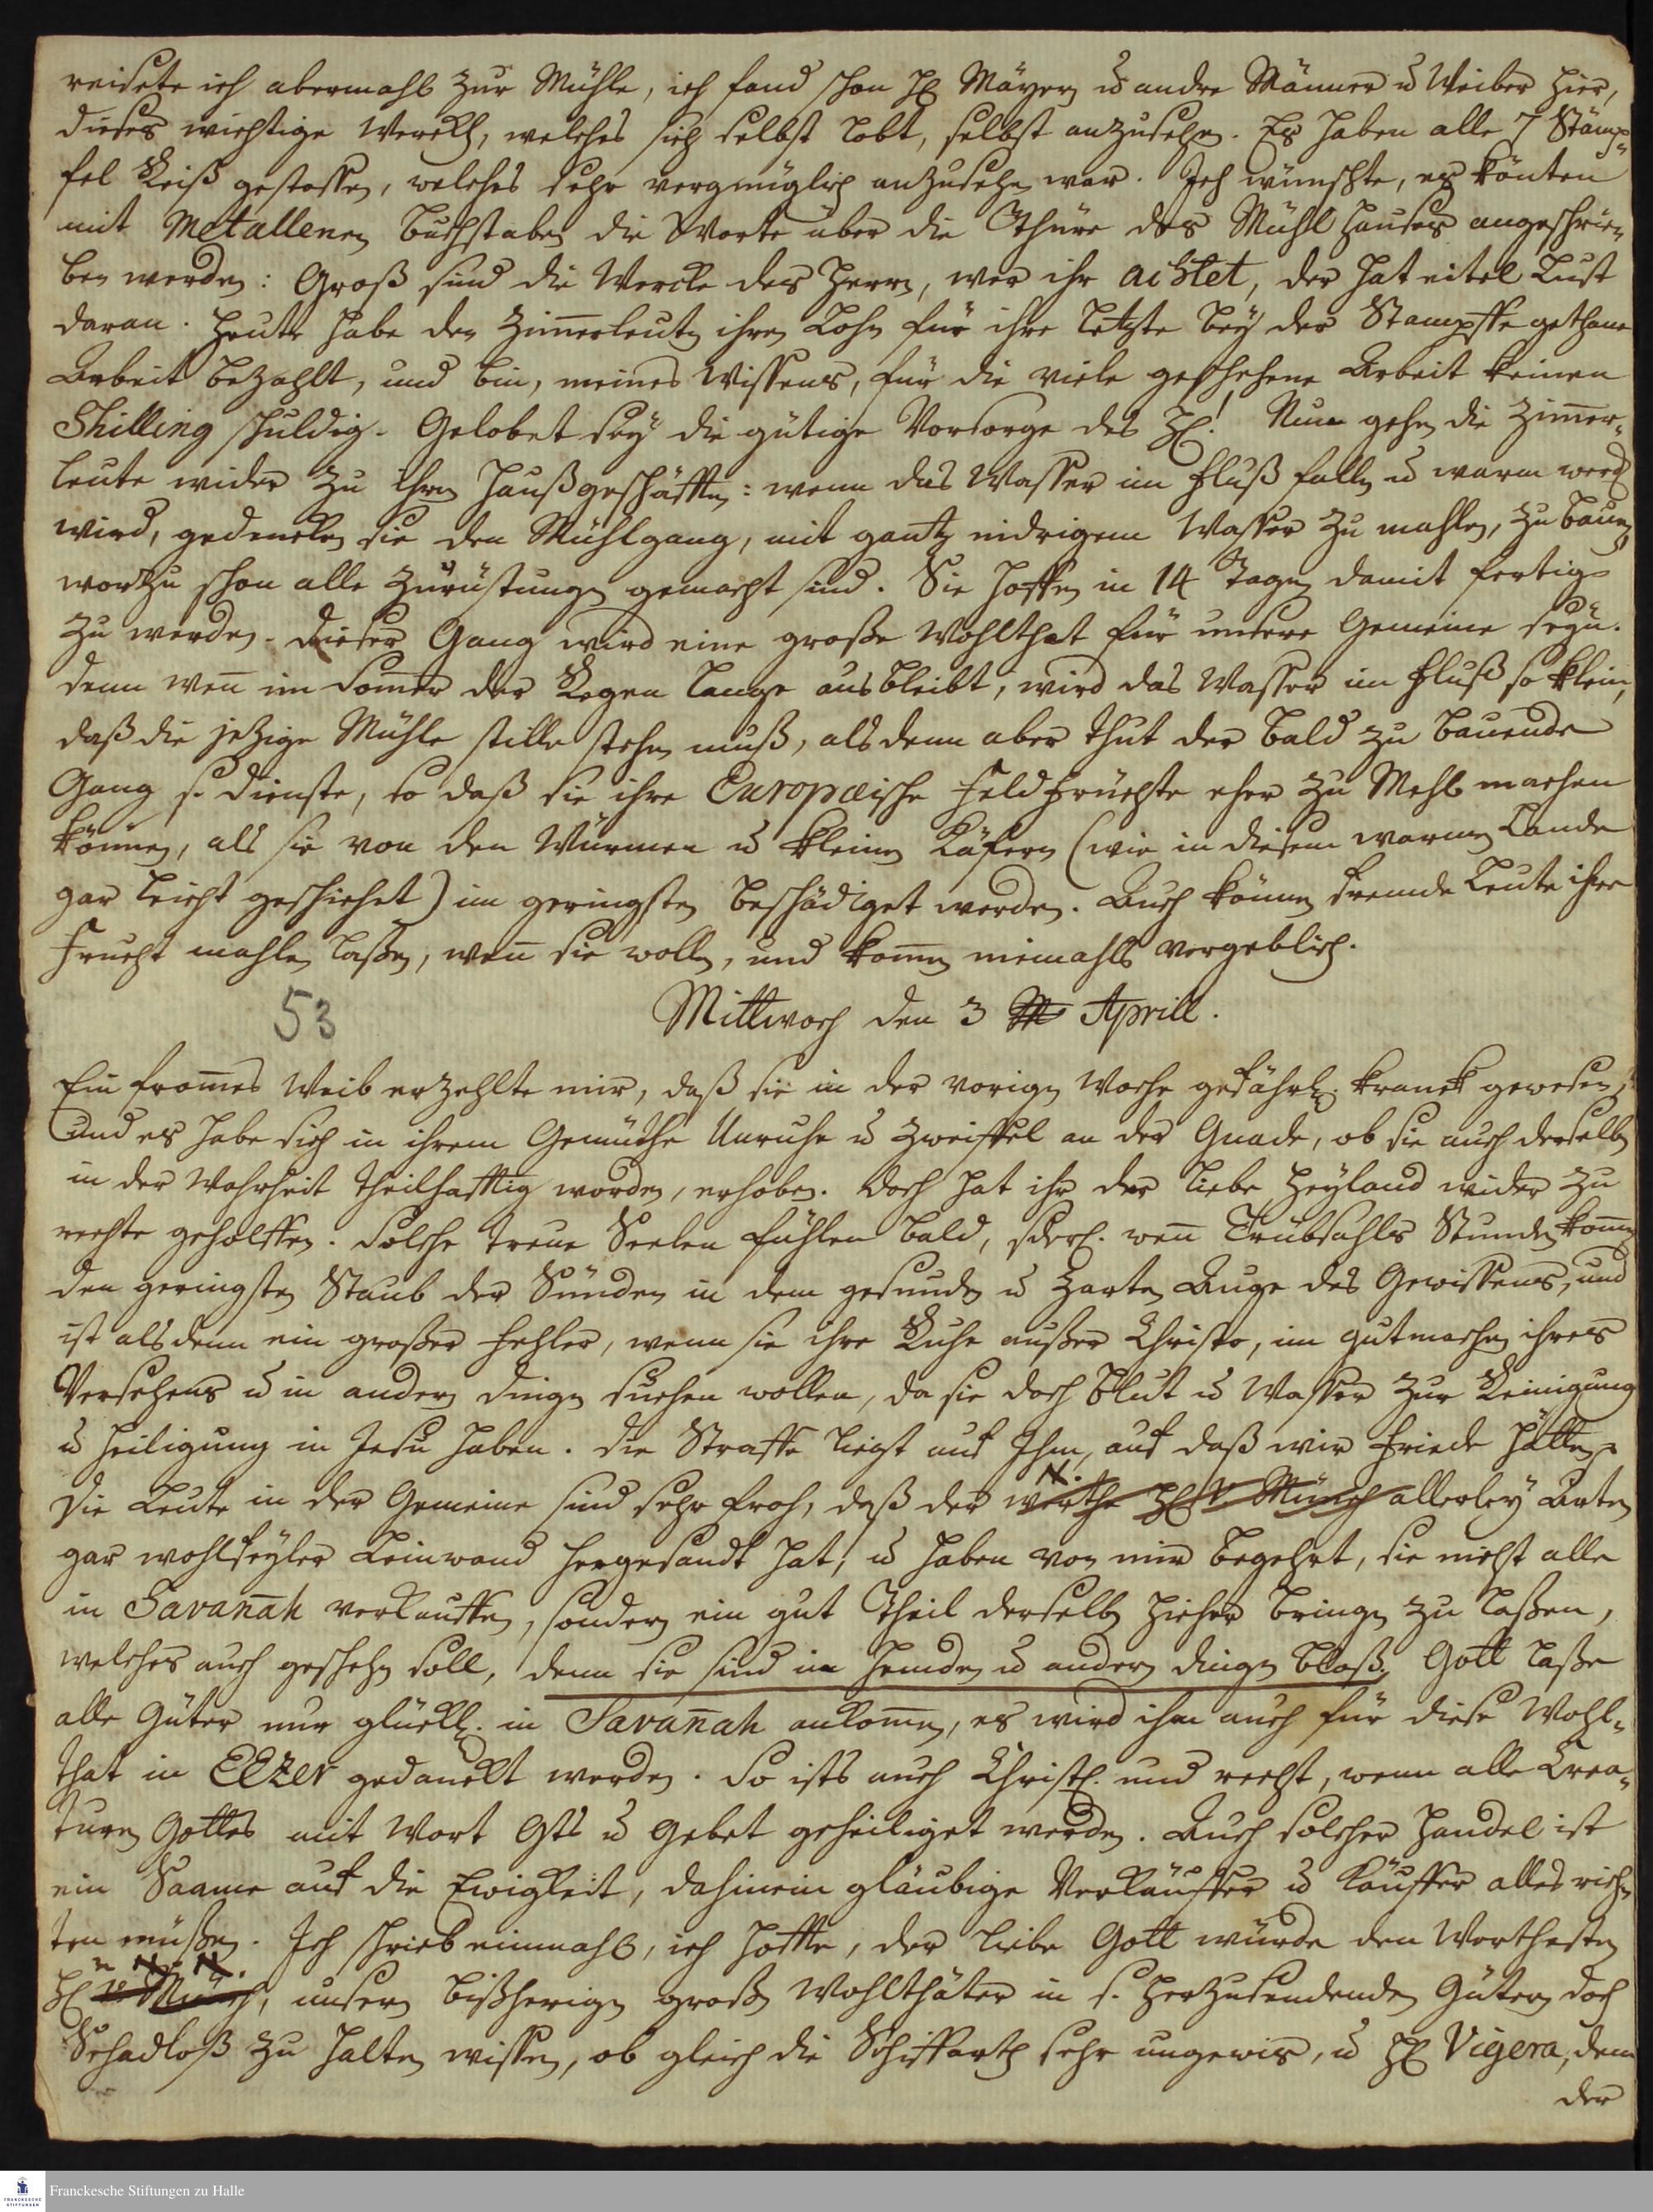 reisete ich abermahls zur Mühle, ich fand schon H Mäyern u. andre Männer u Weiber hier,
dieses wichtige Werck, welches sich selbst lobt, selbst anzusehn. Es haben alle 7 Stämp-
fel Reiß gestossen, welches sehr vergnüglich anzusehn war. Ich wünschte, es könten
mit Metallenen Buchstaben die Worte über die Thüre des Mühl Hauses angeschrie-
ben werden: Groß sind die Wercke des Herrn, wer ihr achtet, der hat eitel Lust
daran. Heute habe den Zim̅erleuten ihren Lohn für ihre letzte bey der Stampffe gethane
Arbeit bezahlt, und bin, meines Wissens, für die viele geschehene Arbeit keinen
Shilling schuldig. Gelobet sey die gütige Vorsorge des H! Nun gehen die Zim̅er-
leute wider zu ihren Haußgeschäfften: wenn das Wasser im Fluß fallen u warm
wird, gedencken sie den Mühlgang, mit gantz nidrigem Wasser zu mahlen, zu bauen
wozu schon alle Zurüstungen gemacht sind. Sie hoffen in 14 Tagen damit fertig
zu werden. Dieser Gang wird eine große Wohlthat für unsere Gemeine seyn.
denn wen̅ im Som̅er der Regen lange ausbleibt, wird das Wasser im Fluß so klein,
daß die jezige Mühle stille stehen muß, alsdenn aber thut der bald zu bauende
Gang s. Dienste, so daß sie ihre Europæische Feldfrüchte eher zu Mehl machen
können, als sie von den Würmen u kleinen Käfern (wie in diesem warmen Lande
gar leicht geschiehet) im geringsten beschädiget werden. Auch können fremde Leute ihre
Frucht mahlen laßen, wen̅ sie wollen, und kom̅en niemahls vergeblich.
53 Mittwoch den 3 Aprill.
Ein from̅es Weib erzehlte mir, daß sie in der vorigen Woche gefährl. kranck gewesen,
und es habe sich in ihrem Gemüthe Unruhe u Zweiffel an der Gnade, ob sie auch derselben
in der Wahrheit theilhafftig worden, erhoben. Doch hat ihr der liebe Heyland wider zu
rechte geholffen. Solche treue Seelen fühlen bald, wen̅ Trübsahls Stunden kom̅en
den geringsten Staub der Sünden in dem gesunden u zarten Auge des Gewissens, und
ist alsdenn ein großer Fehler, wenn sie ihre Ruhe außer Christo, im gutmachen ihres
Versehens u in andern Dingen suchen wollen, da sie doch Blut u Wasser zur Reinigung
u Heiligung in Jesu haben. Die Straffe liegt auf Ihm, auf daß wir Friede hätten.
N.
Die Leute in der Gemeine sind sehr froh, daß der werthe H v. Münch allerley Arten
gar wohlfeyler Leinwand hergesandt hat, u haben von mir begehrt, sie nicht alle
in Savan̅ah verkauffen, sondern ein gut Theil derselben hieher bringen zu laßen,
welches auch geschehen soll, denn sie sind in Hemden u andern Dingen bloß. Gott laße
alle Güter nur glückl. in Savan̅ah ankom̅en, es wird ihm auch für diese Wohl-
that in EEzer gedanckt werden. So ists auch Christl. und recht, wenn alle Crea-
turen Gottes mit Wort Gtts u Gebet geheiliget werden. Auch solcher Handel ist
ein Saame auf die Ewigkeit, dahinein gläubige Verkäuffer u Käuffer alles rich-
ten müßen. Ich schrieb einmahls, ich hoffte, der liebe Gott würde den Werthesten
N. N.
H v. Münch, unsern bißherigen großen Wohlthäter in s. herzusendenden Gütern doch
Schadloß zu halten wissen, ob gleich die Schiffarth sehr ungewis, u H Vigera, dem
der
Franckesche Stiftungen zu Halle